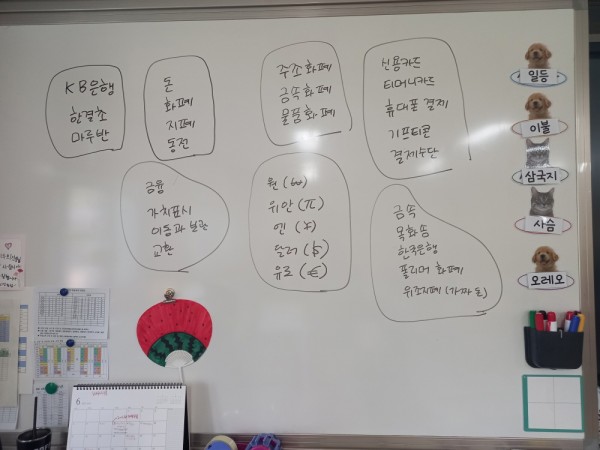 KB은행
한결초
마루반
돈
화폐
지폐
동전
주조화폐
금속화폐
물품화폐
신용카드
티머니카드
휴대폰 결제
기프티콘
결제수단
금융
가치표시
이동과 보관
교환
원 (₩)
위안 (元)
엔 (¥)
달러 ($)
유로 (€)
금속
목화솜
한국은행
폴리머 화폐
위조지폐 (가짜 돈)
일등
이불
삼국지
사슴
오레오
6